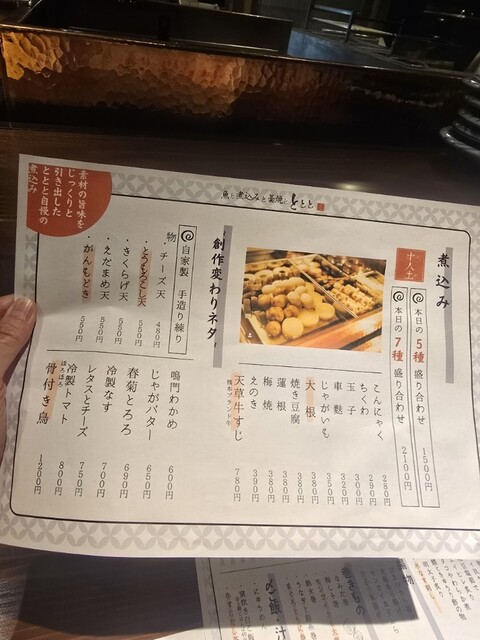 魚と煮込みと釜焼と ととと
素材の旨味を
じっくりと
引き出した
ととと自慢の
煮込み
煮込み
本日の5種盛り合わせ 1500円
本日の7種盛り合わせ 2100円
こんにゃく 280円
ちくわ 290円
玉子 300円
車麩 320円
じゃがいも 350円
大根 380円
焼き豆腐 380円
蓮根 380円
梅焼 380円
えのき 390円
熊本ブランド牛
天草牛すじ 780円
創作変わりネタ
自家製 手造り練り物
・チーズ天 480円
・とうもろこし天 550円
・きくらげ天 550円
・えだまめ天 550円
・がんもどき 550円
鳴門わかめ 600円
じゃがバター 650円
春菊とろろ 690円
冷製なす 700円
レタスとチーズ 750円
冷製トマト 800円
ほろほろ
骨付き鳥 1200円